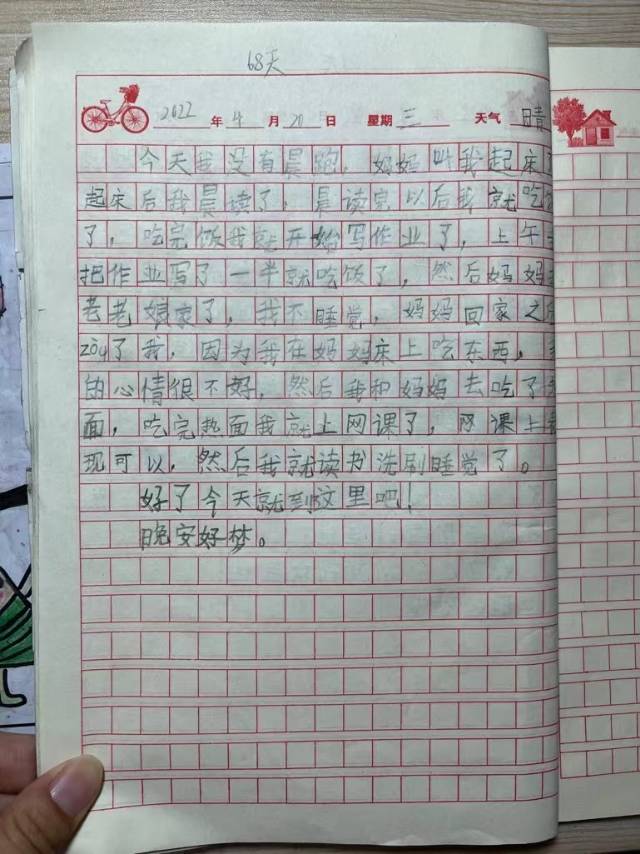 68天
2022 年 4 月 20 日 星期 三 天气 晴
今天我没有晨跑，妈妈叫我起床了
起床后我晨读了，晨读完以后我就吃饭
了，吃完饭我就开始写作业了，上午
把作业写了一半就吃饭了，然后妈妈
老老娘家了，我不睡觉，妈妈回家之后
zòu了我，因为我在妈妈床上吃东西，
的心情很不好，然后我和妈妈去吃了
面，吃完热面我就上网课了，网课上
现可以，然后我就读书洗刷睡觉了。
好了今天就到这里吧！
晚安好梦。